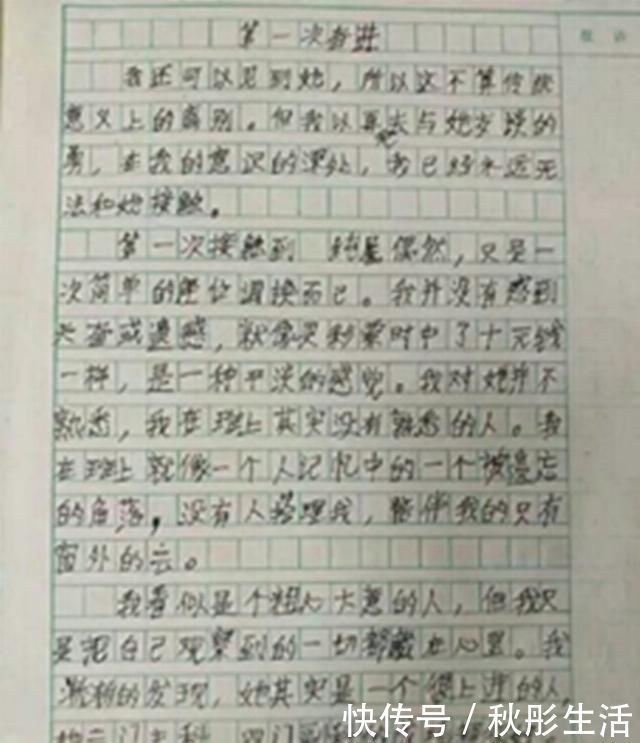 第一次
我还可以见到她，所以这不算传统
意义上的离别。但我以再去与她岁
，在我的意识的深处，我已经永远无
法和她接触。
第一次接触到 纯属偶然，只是一
次简单的座位调换而已。我并没有感到
兴奋或遗憾，就像买彩票时中了十元钱
一样，是一种平淡的感觉。我对她并不
熟悉，我在班上其实没有熟悉的人。我
在班上就像一个人记忆中的一个被遗忘
的角落，没有人搭理我，陪伴我的只有
窗外的云。
我看似是个粗心大意的人，但我只
是把自己观察到的一切都藏在心里。我
渐渐的发现，她其实是一个很上进的人
快传号 / 秋彤生活